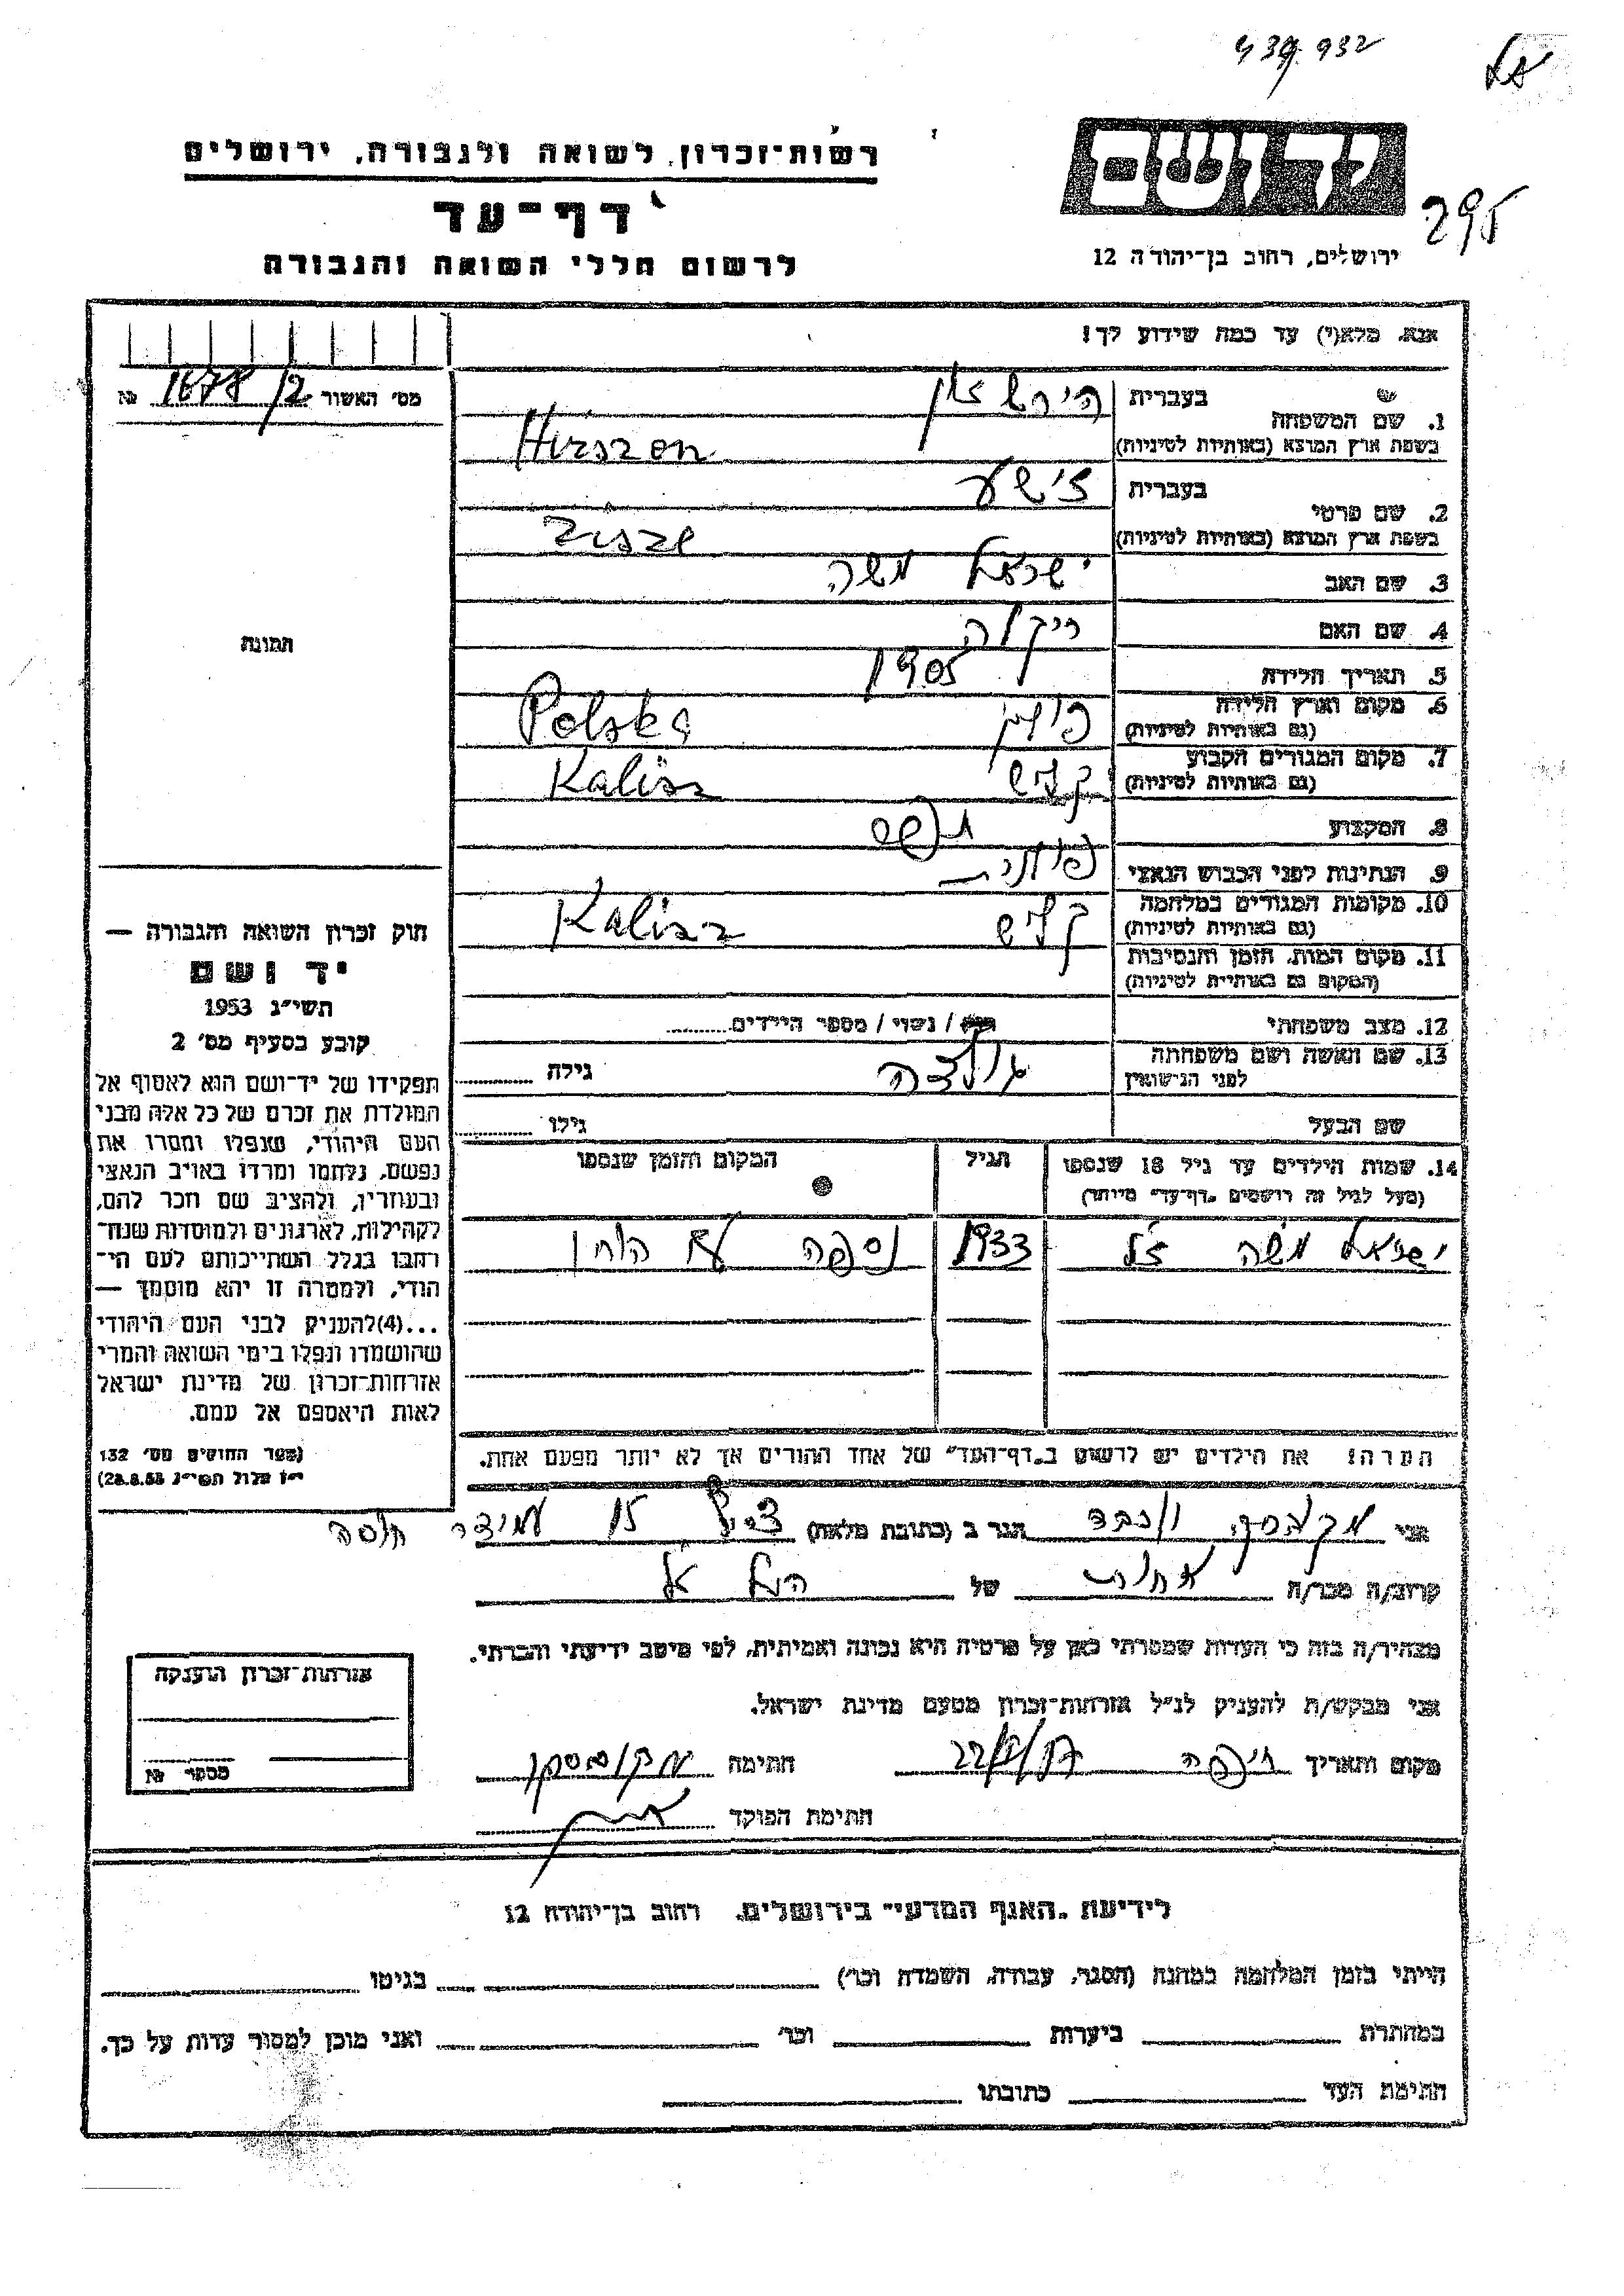 439.932
יד ושם
295
ירושלים, רחוב בן־יהודה 12
רשות־זכרון לשואה ולגבורה, ירושלים
דף־עד
לרשום חללי השואה והגבורה
אנא מלא(י) עד כמה שידוע לך!
מס׳ האשור 1678/2 №
1. שם המשפחה
בעברית הירשזון
בשפת ארץ המוצא (באותיות לטיניות) Hirszon
2. שם פרטי
בעברית זישע
בשפת ארץ המוצא (באותיות לטיניות) Zisze
3. שם האב ישראל משה
4. שם האם
5. תאריך הלידה 1905
6. מקום וארץ הלידה
(גם באותיות לטיניות) פולין Polska
7. מקום המגורים הקבוע
(גם באותיות לטיניות) קליש Kalisz
8. המקצוע
9. הנתינות לפני הכבוש הנאצי פולנית
10. מקומות המגורים במלחמה
(גם באותיות לטיניות) קליש Kalisz
11. מקום המות, הזמן והנסיבות
(המקום גם באותיות לטיניות)
12. מצב משפחתי רווק / נשוי / מספר הילדים
13. שם האשה ושם משפחתה
לפני הנישואין גולדה גילה
שם הבעל גילו
14. שמות הילדים עד גיל 18 שנספו
(מעל לגיל זה רושמים "דף־עד" מיוחד)
הגיל
המקום והזמן שנספו
ישראל משה ז"ל 1933 נספה עם
הערה! את הילדים יש לרשום ב"דף־העד" של אחד ההורים אך לא יותר מפעם אחת.
תמונה
חוק זכרון השואה והגבורה —
יד ושם
תשי״ג 1953
קובע בסעיף מס׳ 2
תפקידו של יד־ושם הוא לאסוף אל
המולדת את זכרם של כל אלה מבני
העם היהודי, שנפלו ומסרו את
נפשם, נלחמו ומרדו באויב הנאצי
ובעוזריו, ולהציב שם וזכר להם,
לקהילות, לארגונים ולמוסדות שנח־
רבו בגלל השתייכותם לעם הי־
הודי, ולמטרה זו יהא מוסמך —
...(4) להעניק לבני העם היהודי
שהושמדו ונפלו בימי השואה והמרי
אזרחות־זכרון של מדינת ישראל
לאות היאספם אל עמם.
(ספר החוקים מס׳ 132
י״ז אלול תשי״ג 28.8.53)
אני הגר ב (כתובת מלאה) 15
קרוב/ה מכר/ה של
מצהיר/ה בזה כי העדות שמסרתי כאן על פרטיה היא נכונה ואמיתית, לפי מיטב ידיעתי והכרתי.
אני מבקש/ת להעניק לנ״ל אזרחות־זכרון מטעם מדינת ישראל.
מקום ותאריך חיפה חתימה
חתימת הפוקד
אזרחות־זכרון הוענקה
מספר №
לידיעת "האגף המדעי" בירושלים, רחוב בן־יהודה 12
הייתי בזמן המלחמה במחנה (הסגר, עבודה, השמדה וכו׳) בגיטו
במחתרת ביערות וכו׳ ואני מוכן למסור עדות על כך.
חתימת העד כתובתו